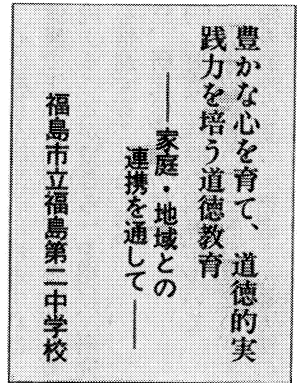 豊かな心を育て、道徳的実
践力を培う道徳教育
――家庭・地域との
連携を通して――
福島市立福島第二中学校